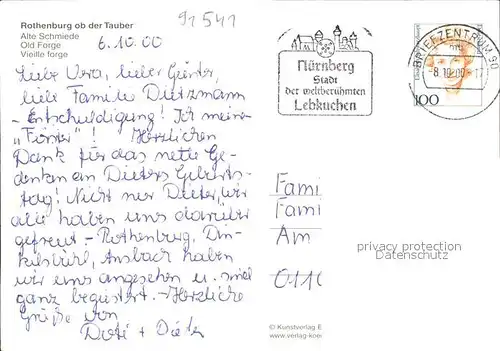 Rothenburg ob der Tauber
Alte Schmiede
Old Forge
Vieille forge
91541
6.10.00
Liebe Vera, lieber Günter,
liebe Familie Dietzmann
- Entschuldigung! Ich meine
"Förster"! Herzlichen
Dank für das nette Ge-
denken an Dieters Geburts-
tag! Nicht nur Dieter, wir
alle haben uns darüber
gefreut - Rothenburg, Din-
kelsbühl, Ansbach haben
wir uns angesehen u. sind
ganz begeistert. - Herzliche
Grüße von
Dori + Dieter
Nürnberg
Stadt
der weltberühmten
Lebkuchen
BRIEFZENTRUM 90
-8.10.00-17
100
Fami
Fami
Am
privacy protection
Daten-/Datumschutz
© Kunstverlag E
www.verlag-koe